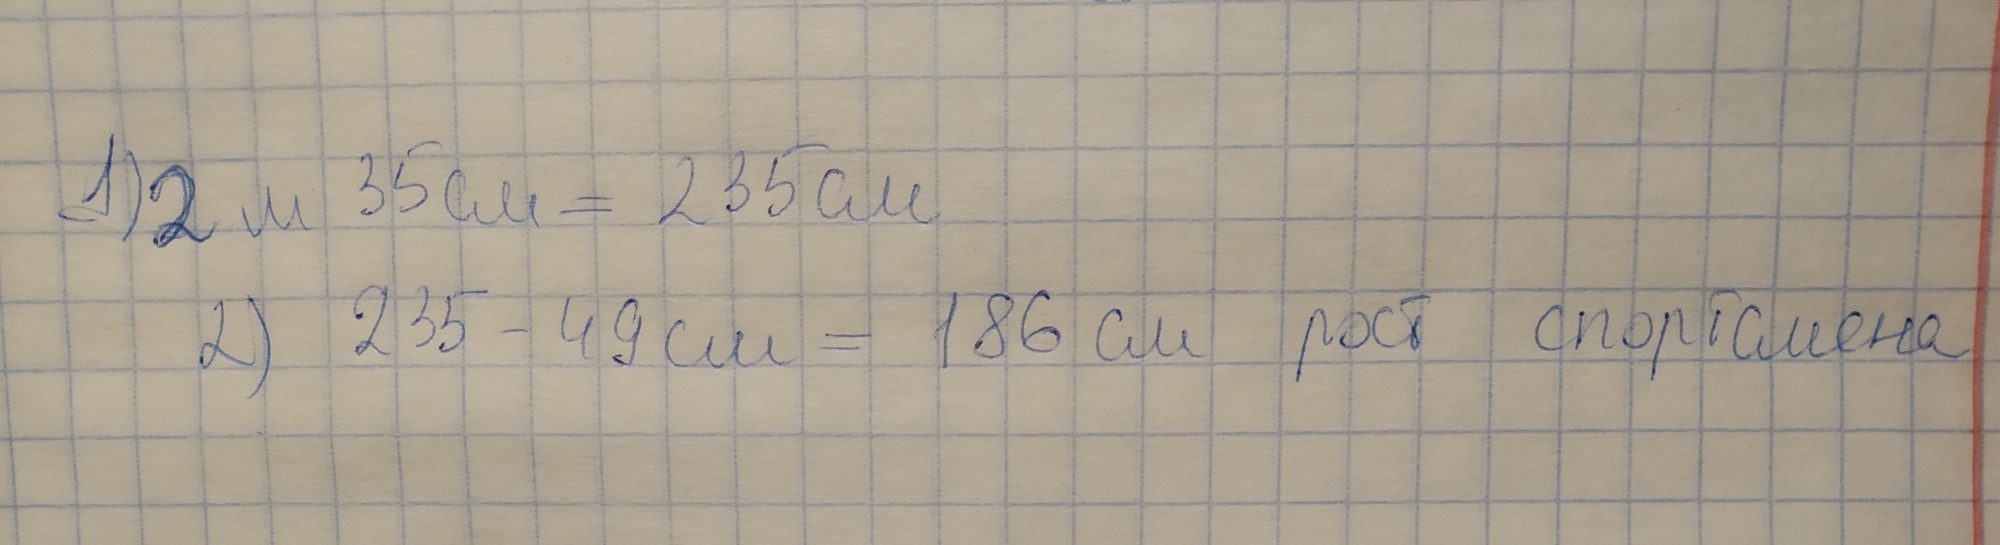 1) 2 м 35 см = 235 см
2) 235 - 49 см = 186 см рост спортсмена